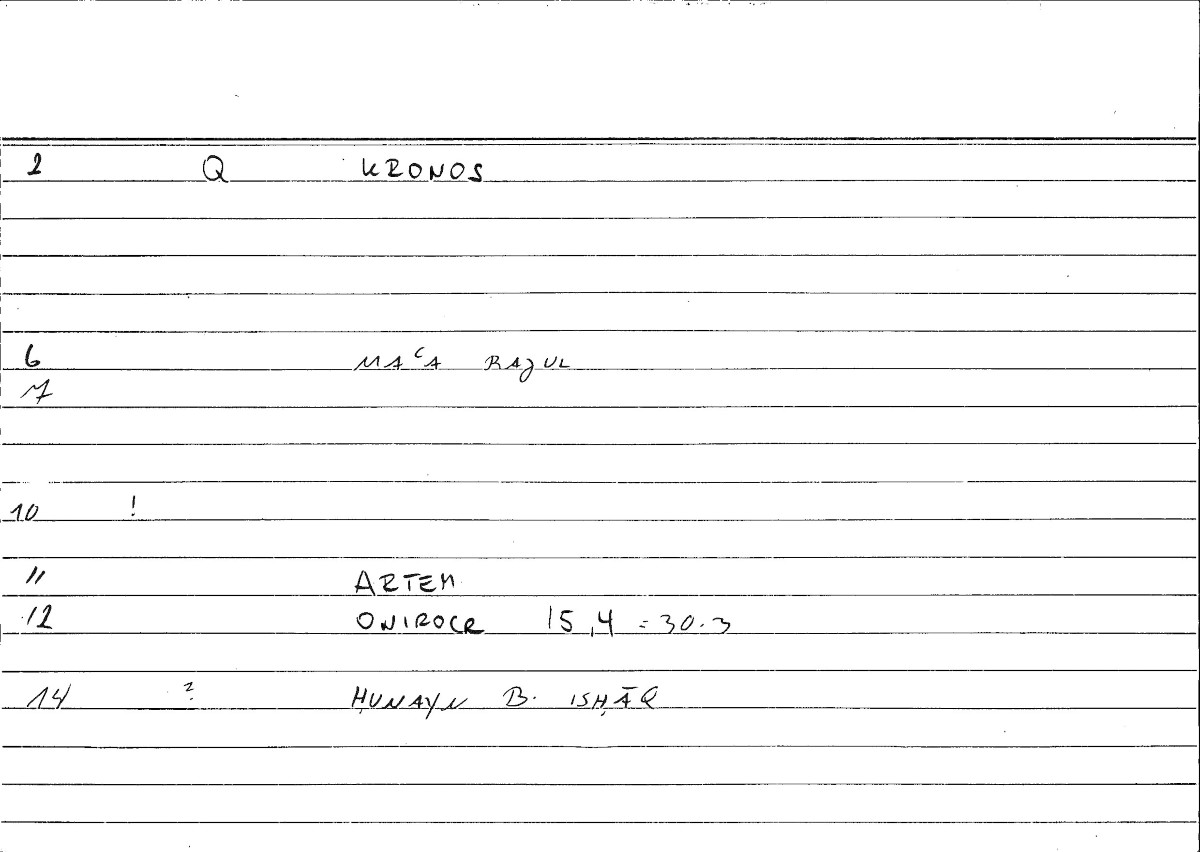 2 Q KRONOS
6 MAʿA RAJUL
7
10 !
11 ARTEM
12 ONIROCR 15,4 = 30.3
14 ? ḤUNAYN B. ISḤĀQ